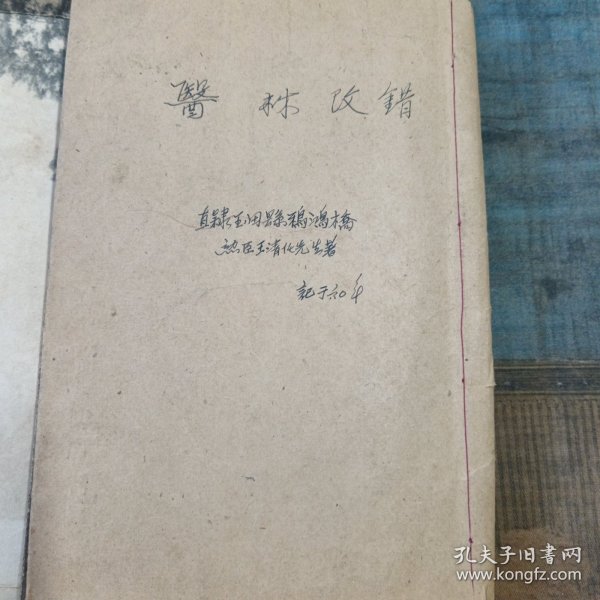 醫林改錯
直隸玉田縣鴉鴻橋
勲臣王清任先生著
記于60年
孔夫子旧書网
www.kongfz.com